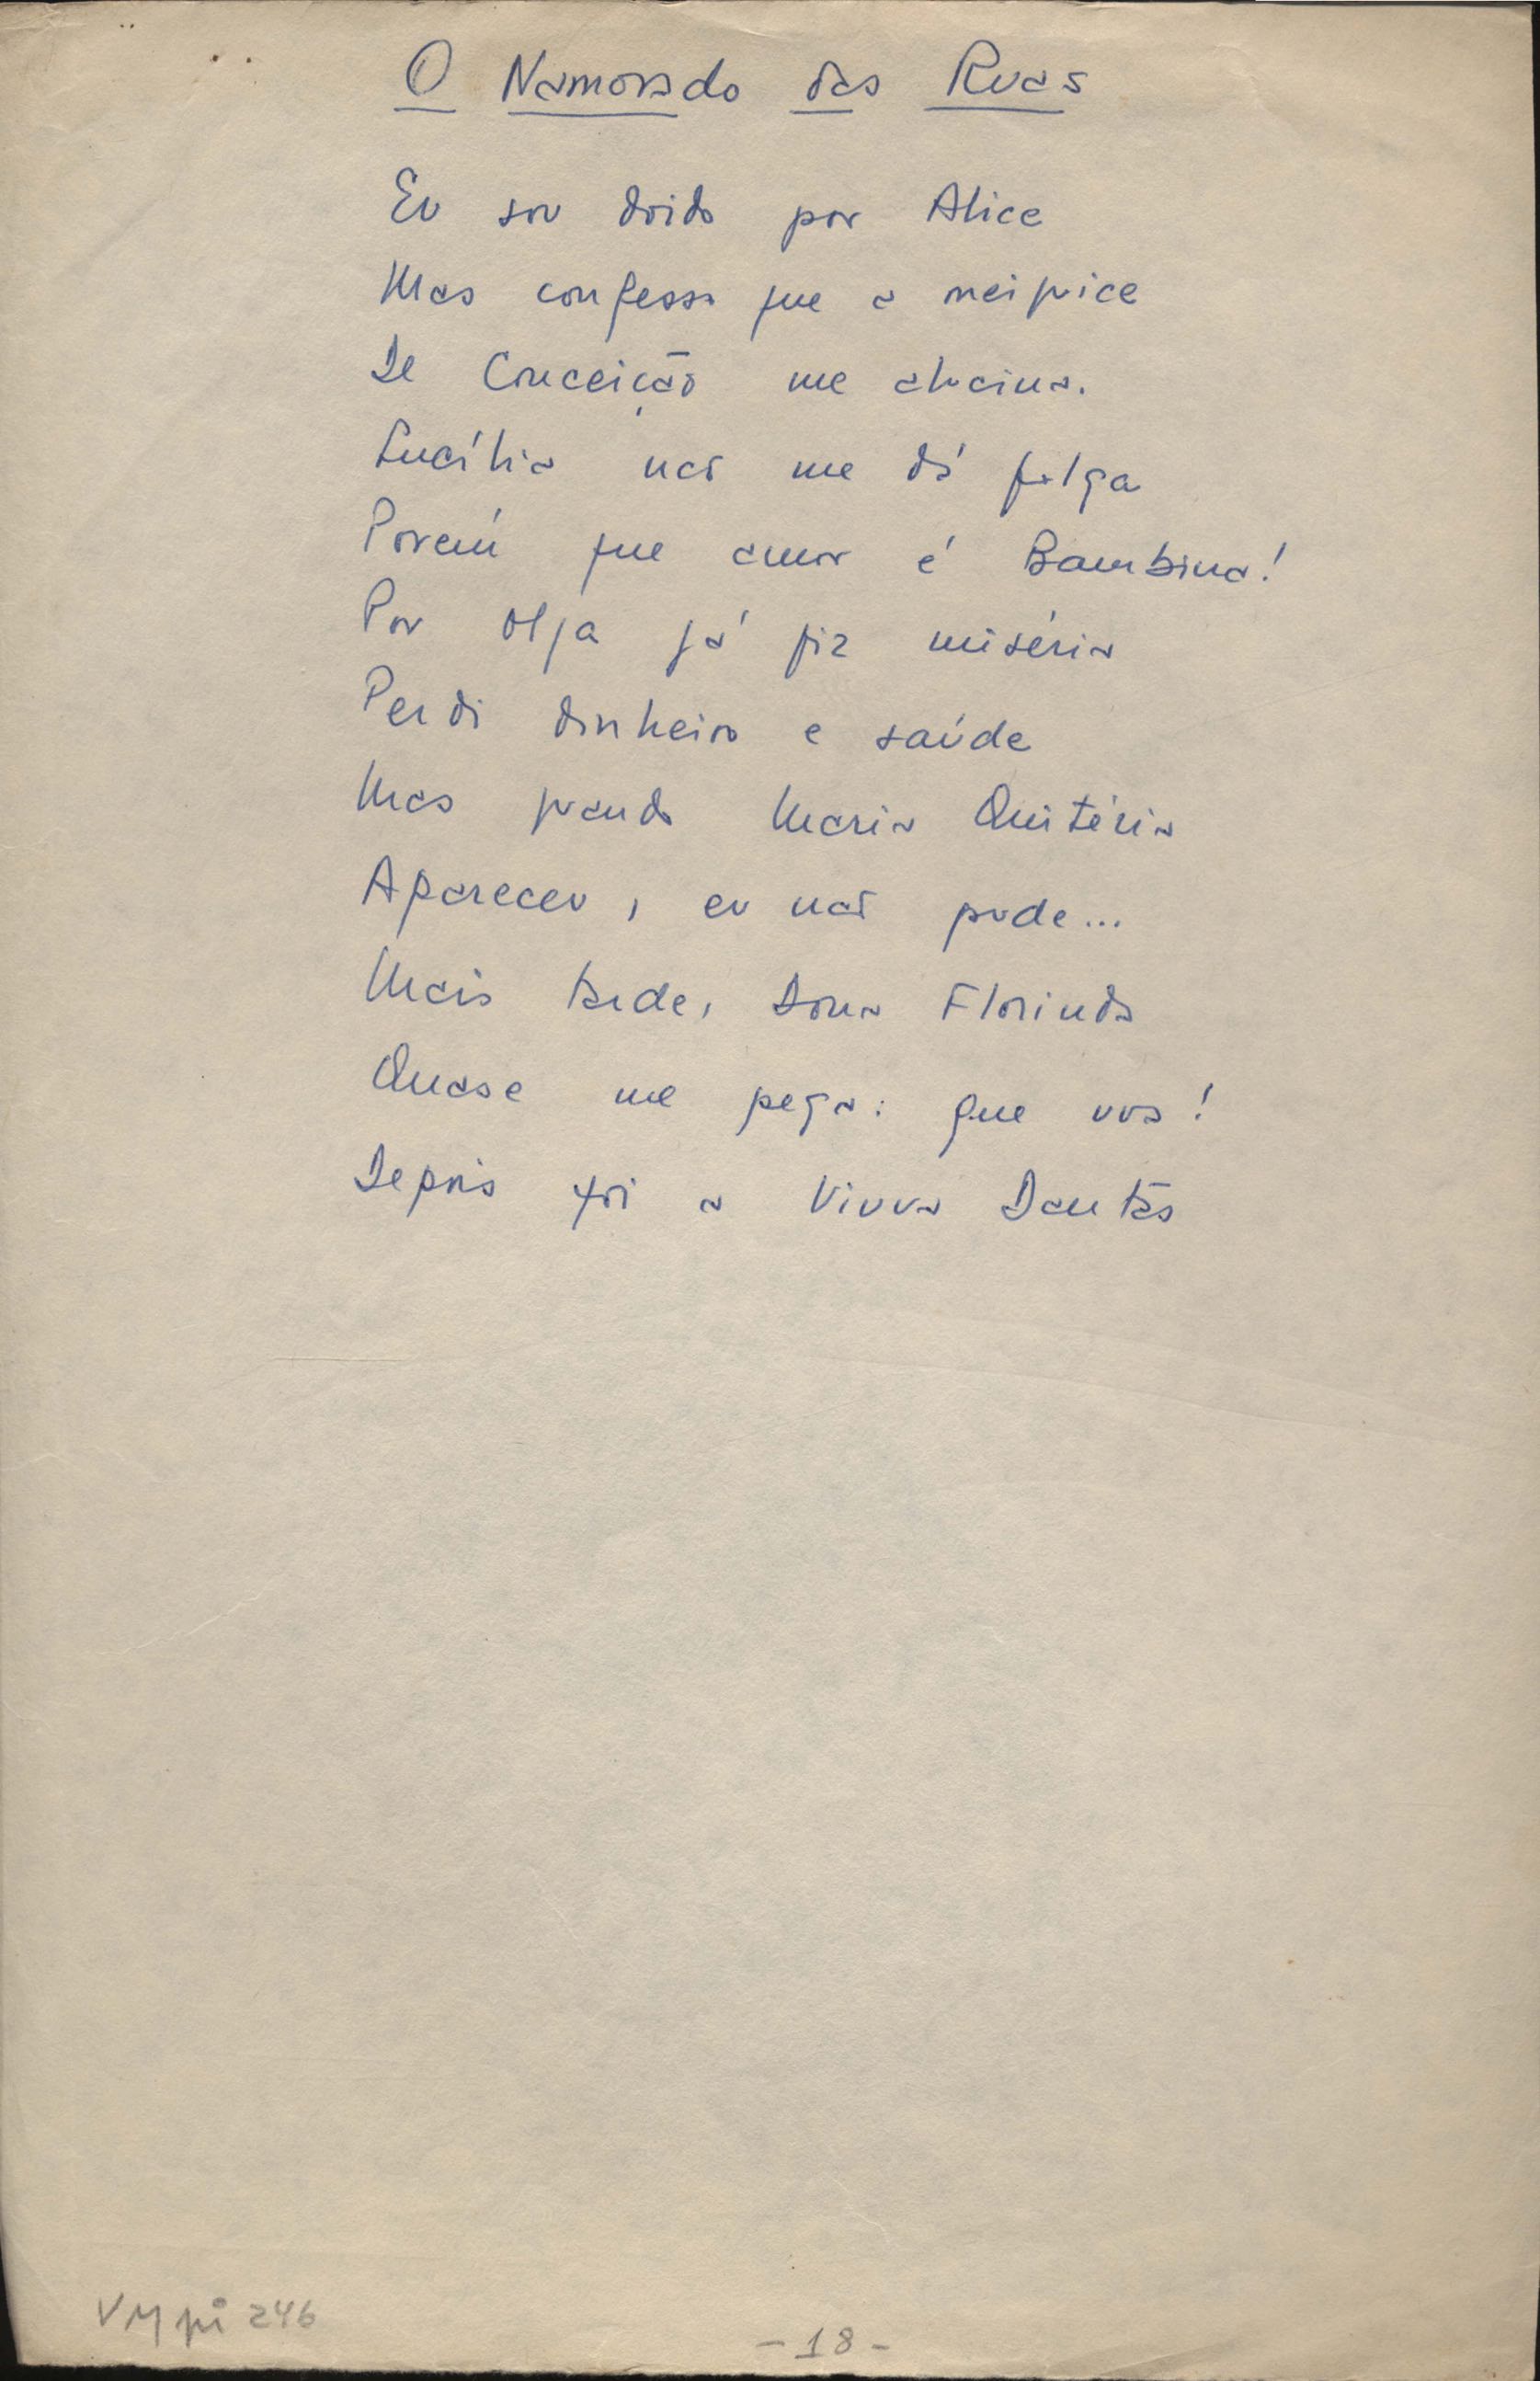 O Namorado das Ruas
Eu sou doido por Alice
Mas confesso que a meiguice
De Conceição me alucina.
Lucília não me dá folga
Porém que amor é Bambina!
Por Olga já fiz miséria
Perdi dinheiro e saúde
Mas quando Maria Quitéria
Apareceu, eu não pude...
Mais tarde, Dona Florinda
Quase me pega: que uva!
Depois foi a Viúva Dantas
VM pi 246
- 18 -